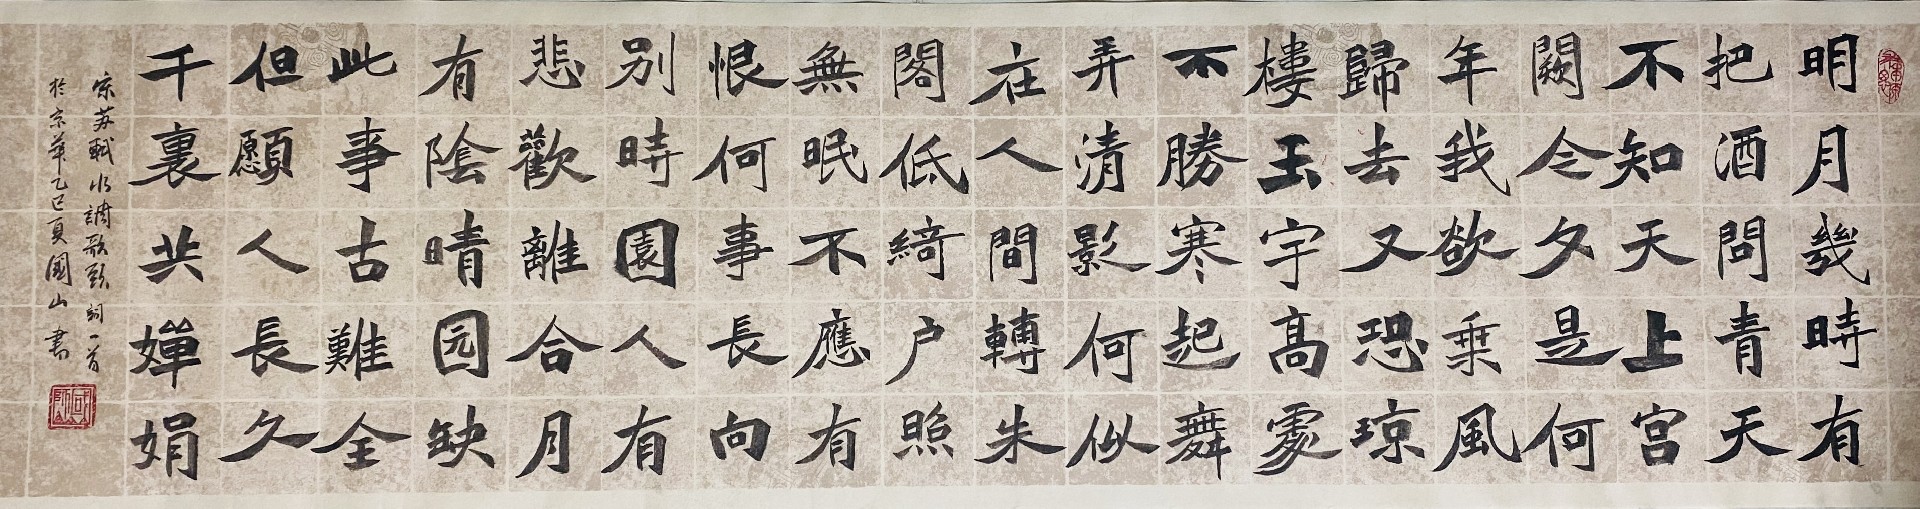 明月幾時有
把酒問青天
不知天上宫
闕今夕是何
年我欲乘風
歸去又恐琼
樓玉宇高處
不勝寒起舞
弄清影何似
在人間轉朱
閣低綺户照
無眠不應有
恨何事長向
别時園人有
悲歡離合月
有陰晴园缺
此事古難全
但願人長久
千裏共嬋娟
宋苏軾水調歌頭詞一首
於京華乙巳夏國山書